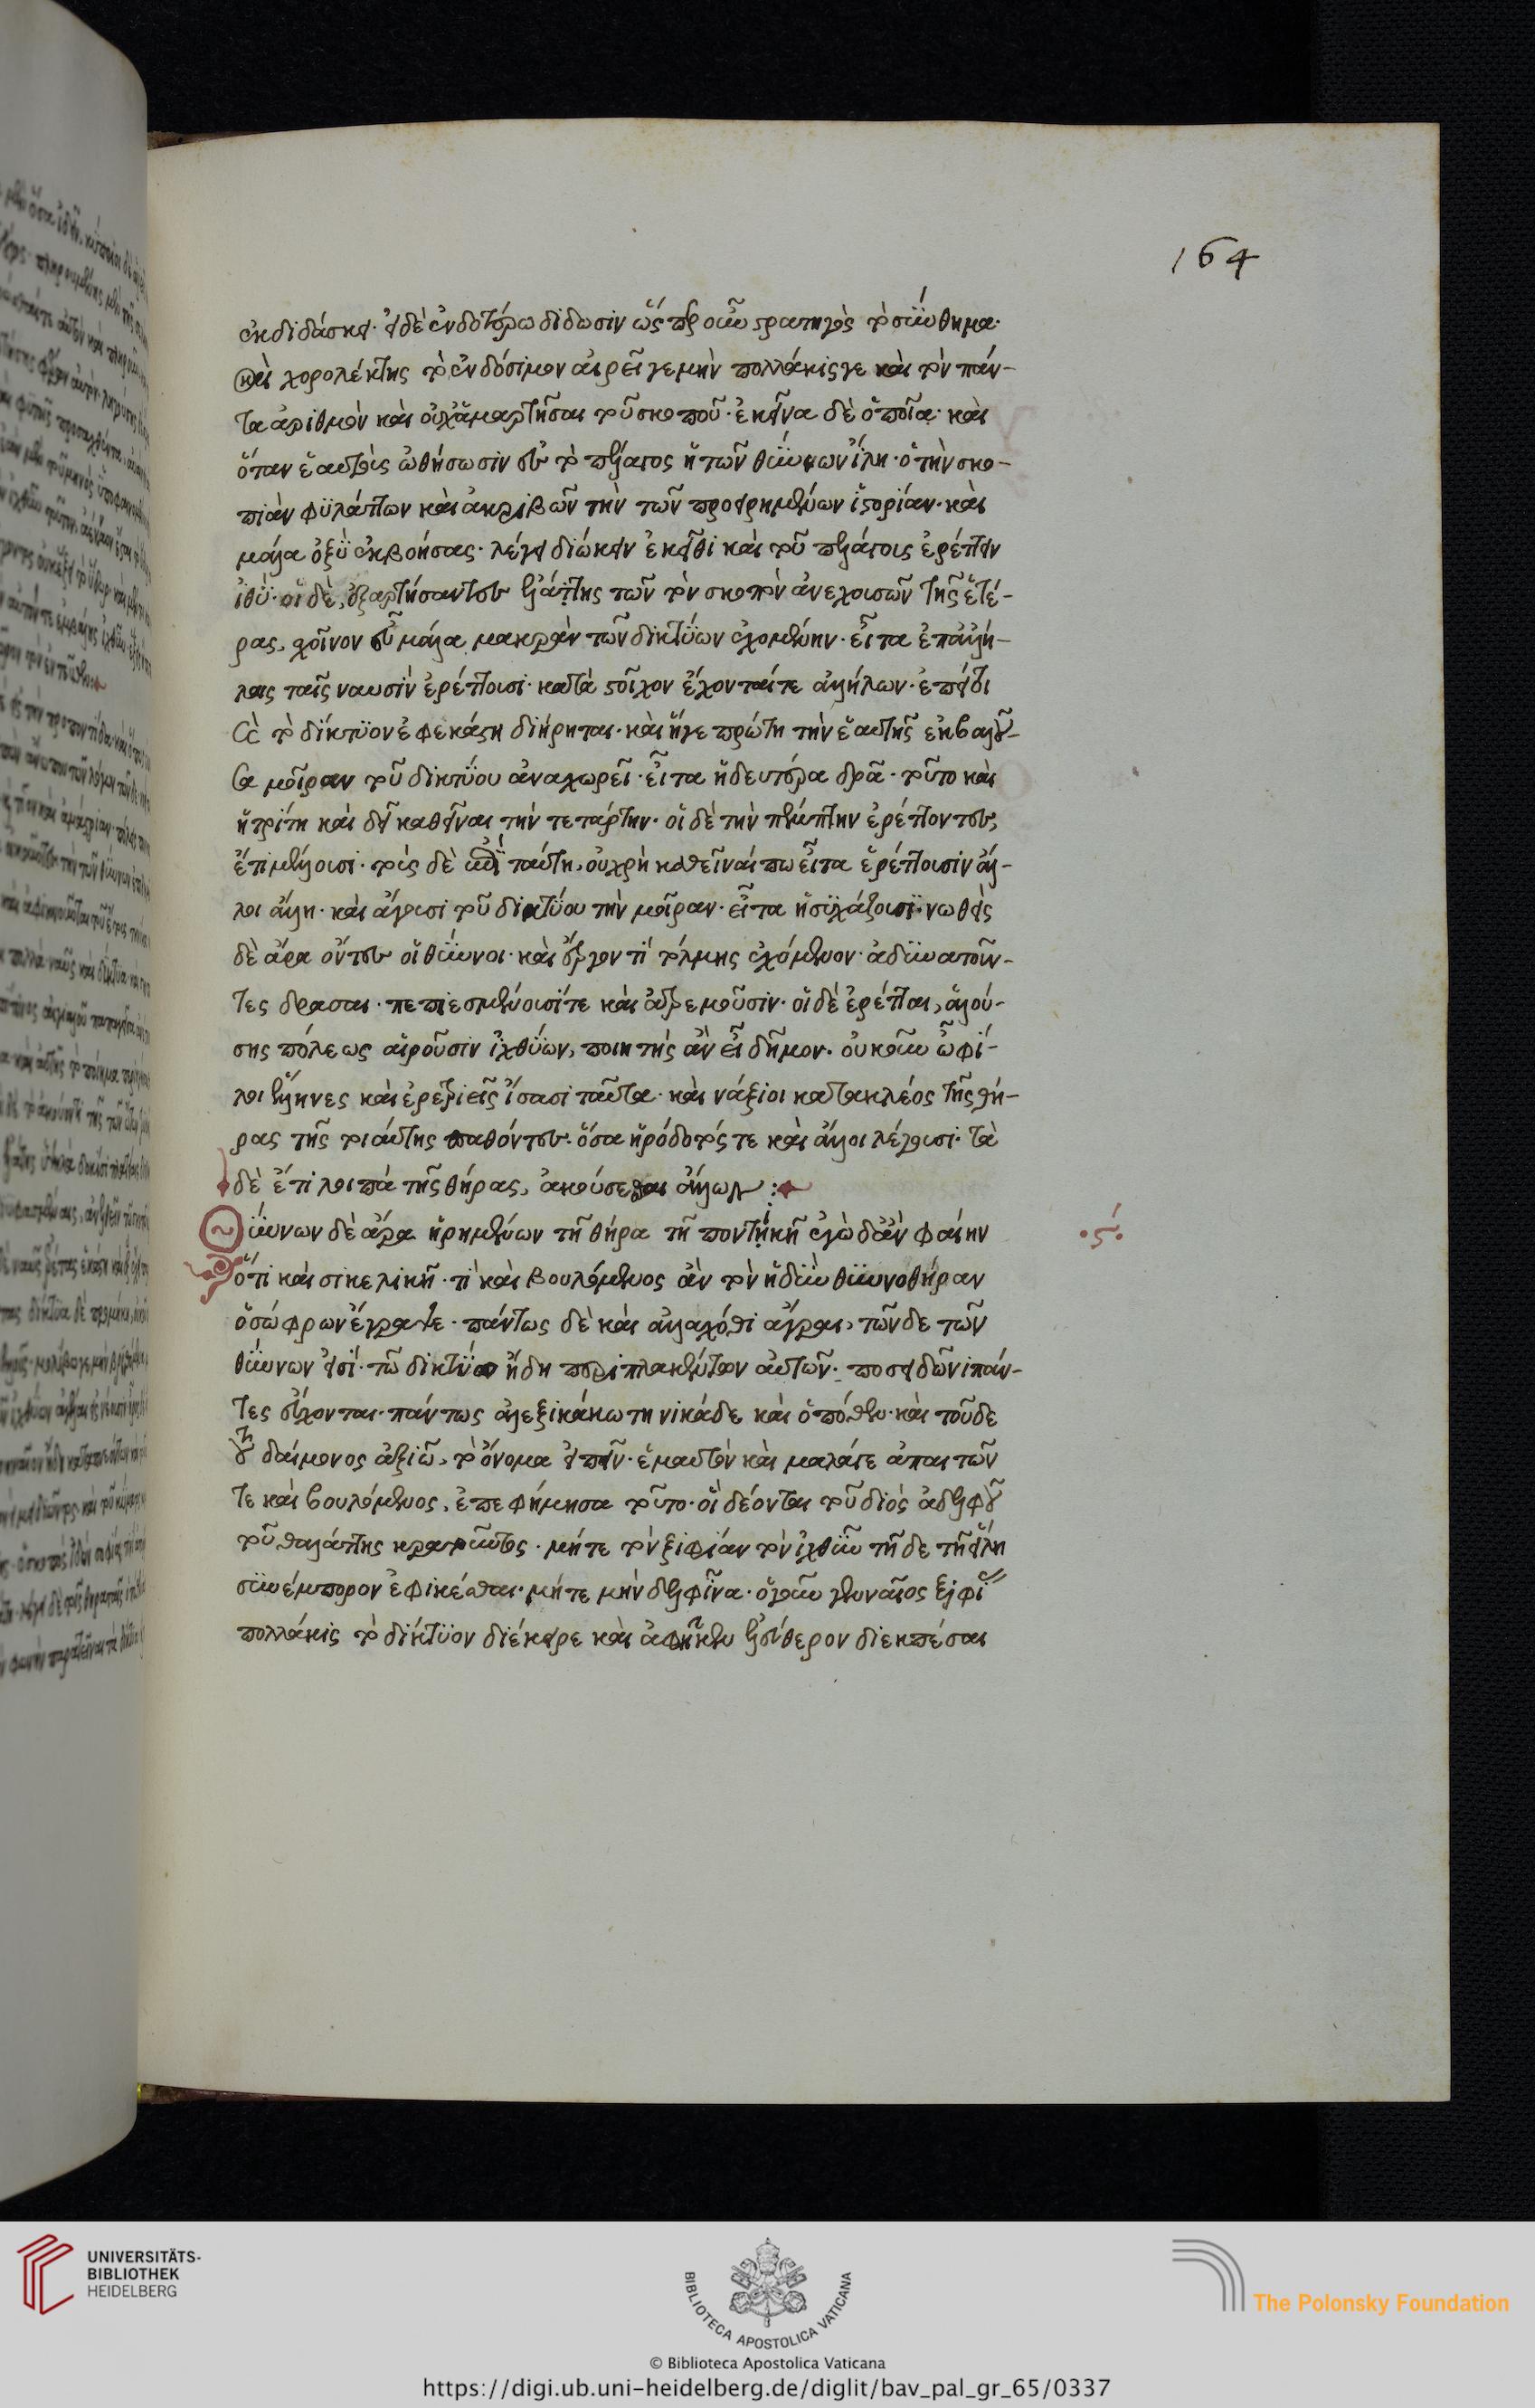 164
ἐκδιδάσκει· εἰ δὲ ἐνδοτέρω δίδωσιν ὥσπερ οὖν στρατηγὸς τὸ σύνθημα·
καὶ χορολέκτης τὸ ἐνδόσιμον αἱρεῖ γε μὴν πολλάκις γε καὶ τὸν πάν-
τα ἀριθμὸν καὶ οὐχ ἁμαρτῆσαι τοῦ σκοποῦ· ἐκεῖνα δὲ ὁποῖα· καὶ
ὅταν ἑαυτοὺς ὠθήσωσιν ἐς τὸ πέλαγος ἡ τῶν θύννων ἴλη· ὁ τὴν σκο-
πιὰν φυλάττων καὶ ἀκριβῶν τὴν τῶν προειρημένων ἱστορίαν· καὶ
μάλα ὀξὺ ἐκβοήσας· λέγει διώκειν ἐκεῖθι καὶ τοῦ πελάγους ἐρέττειν
ἰθύ· οἱ δὲ, ἐξαρτήσαντες ἐλάτης τῶν τὸν σκοπὸν ἀνεχουσῶν τῆς ἑτέ-
ρας, σχοῖνον εὖ μάλα μακρὰν τῶν δικτύων ἐχομένην· εἶτα ἐπαλλή-
λοις ταῖς ναυσὶν ἐρέττουσι· κατὰ στοῖχον ἔχονταί τε ἀλλήλων· ἐπεί τοι
καὶ τὸ δίκτυον ἐφ ἑκάστη διῄρηται· καὶ ἥ γε πρώτη τὴν ἑαυτῆς ἐκβαλοῦ-
σα μοῖραν τοῦ δικτύου ἀναχωρεῖ· εἶτα ἡ δευτέρα δρᾷ· τοῦτο καὶ
ἡ τρίτη καὶ δεῖ καθεῖναι τὴν τετάρτην· οἱ δὲ τὴν πέμπτην ἐρέττοντες,
ἔτι μέλλουσι· τοὺς δὲ ἐπὶ ταύτη, οὐ χρὴ καθεῖναί πω εἶτα ἐρέττουσιν ἄλ-
λοι ἄλλη· καὶ ἄγουσι τοῦ δικτύου τὴν μοῖραν· εἶτα ἡσυχάζουσι· νωθεῖς
δὲ ἄρα ὄντες οἱ θύννοι· καὶ ἔργον τί τόλμης ἐχόμενον· ἀδυνατοῦν-
τες δρᾶσαι· πεπιεσμένοι τε καὶ ἀτρεμοῦσιν· οἱ δὲ ἐρέται, ἁλού-
σης πόλεως αἱροῦσιν ἰχθύων, ποιητὴς ἂν εἴ δῆμον. οὐκοῦν ὦ φί-
λοι ἕλληνες καὶ ἐρετριεῖς ἴσασι ταῦτα· καὶ νάξιοι κατὰ κλέος τῆς θή-
ρας τῆς τοιαύτης παθόντες· ὅσα ἡρόδοτός τε καὶ ἄλλοι λέγουσι· τὰ
δὲ ἔτι λοιπὰ τῆς θήρας, ἀκούσεσθαι ἄλλων :
θύννων δὲ ἄρα ᾑρημένων τῇ θήρᾳ τῇ ποντικῇ ἐγὼ δ ἂν φαίην ·ϛ·
ὅτι καὶ σικελικῇ· τί καὶ βουλόμενος ἂν τὸν ἡδὺν θυννοθήραν
ὁ σώφρων ἔγραψε· πάντως δὲ καὶ ἀλλαχόθι ἄγραι, τῶνδε τῶν
θύννων εἰσί· τῷ δικτύῳ ἤδη περιπλακέντων αὐτῶν· ποσειδῶνι πάν-
τες εὔχονται· πάντως ἀλεξικάκω τηνικάδε καὶ ὁπόθεν· καὶ τοῦδε
τοῦ δαίμονος ἀξιῶ, τὸ ὄνομα εἰπεῖν· ἐμαυτὸν καὶ μαλάγε ἀπαιτῶν
τε καὶ βουλόμενος, ἐπεφήμησα τοῦτο· οἱ δέονται τοῦ διὸς ἀδελφοῦ
τοῦ θαλάττης κρατοῦντος· μήτε τὸν ξιφίαν τὸν ἰχθὺν τῇδε τῇ ἴλῃ
συνέμπορον ἐφικέσθαι· μήτε μὴν δελφῖνα· ὁ γοῦν γενναῖος ξιφί
πολλάκις τὸ δίκτυον διέκειρε καὶ ἀφῆκεν ἐλεύθερον διεκπέσαι
UNIVERSITÄTS-
BIBLIOTHEK
HEIDELBERG
BIBLIOTECA APOSTOLICA VATICANA
The Polonsky Foundation
© Biblioteca Apostolica Vaticana
https://digi.ub.uni-heidelberg.de/diglit/bav_pal_gr_65/0337